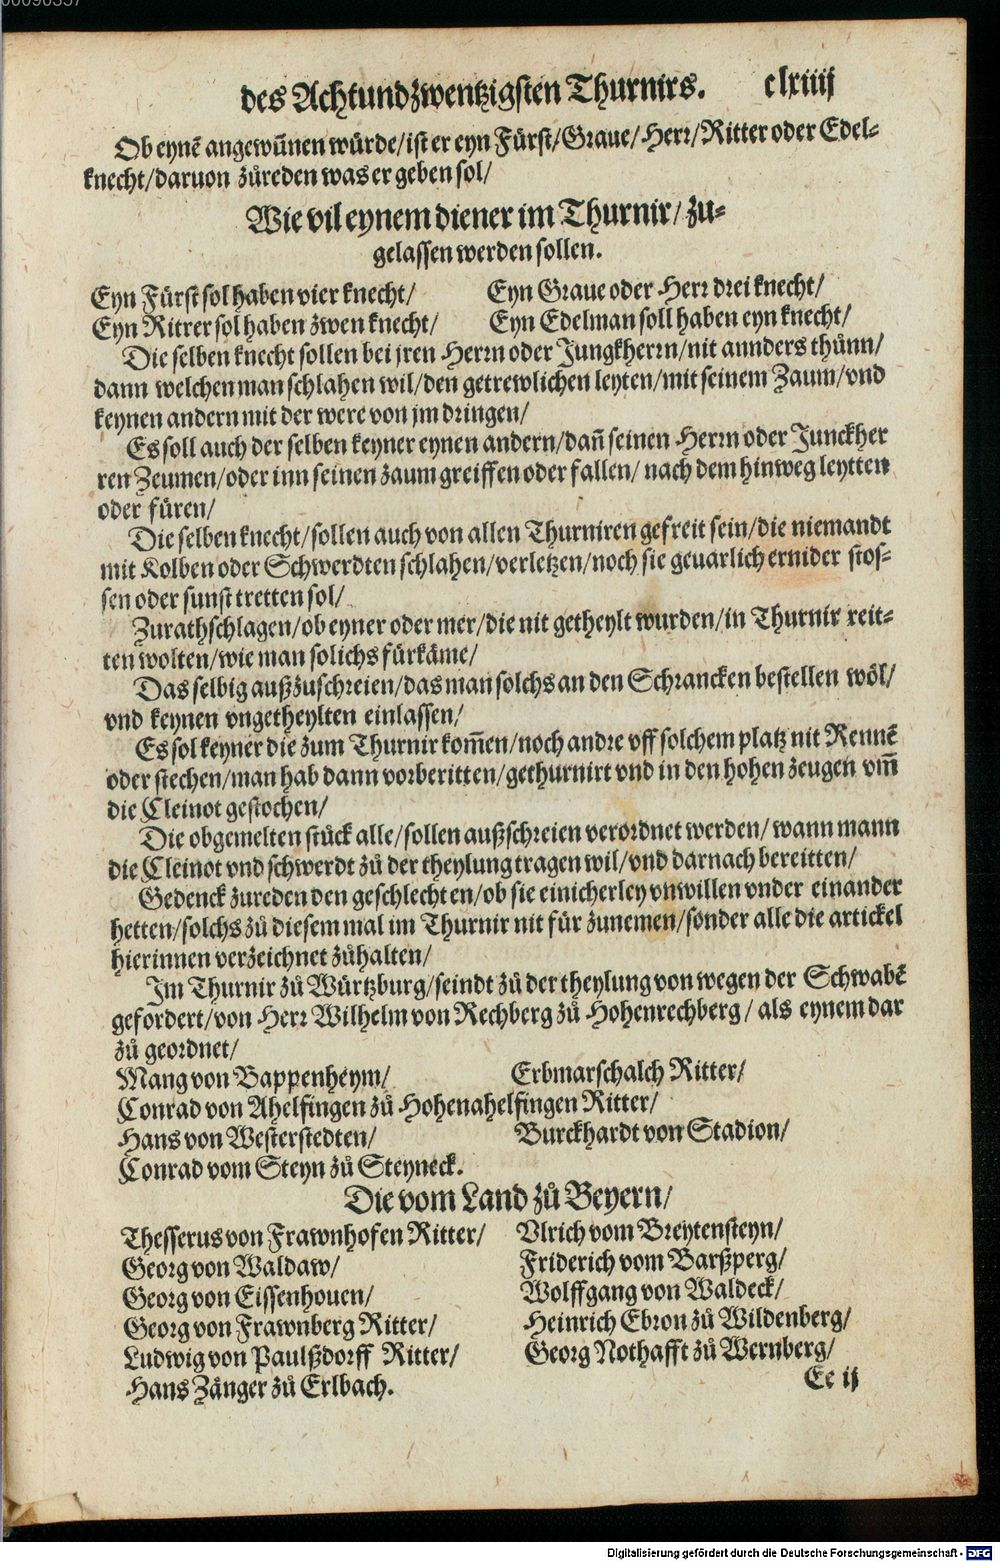 00090337
des Achtundzwentzigsten Thurnirs. clxiiij
Ob eynē angewūnen würde/ist er eyn Fürst/Graue/Herr/Ritter oder Edel-
knecht/daruon zůreden was er geben sol/
Wie vil eynem diener im Thurnir/zu-
gelassen werden sollen.
Eyn Fürst sol haben vier knecht/ Eyn Graue oder Herr drei knecht/
Eyn Ritrer sol haben zwen knecht/ Eyn Edelman soll haben eyn knecht/
Die selben knecht sollen bei jren Herrn oder Jungkherrn/nit annders thůnn/
dann welchen man schlahen wil/den getrewlichen leyten/mit seinem Zaum/vnd
keynen andern mit der were von jm dringen/
Es soll auch der selben keyner eynen andern/dañ seinen Herrn oder Junckher
ren Zeumen/oder inn seinen zaum greiffen oder fallen/nach dem hinweg leytten
oder füren/
Die selben knecht/sollen auch von allen Thurniren gefreit sein/die niemandt
mit Kolben oder Schwerdten schlahen/verletzen/noch sie geuarlich ernider stos-
sen oder sunst tretten sol/
Zurathschlagen/ob eyner oder mer/die nit getheylt wurden/in Thurnir reit-
ten wolten/wie man solichs fürkäme/
Das selbig außzuschreien/das man solchs an den Schrancken bestellen wöl/
vnd keynen vngetheylten einlassen/
Es sol keyner die zum Thurnir kom̄en/noch andre vff solchem platz nit Rennē
oder stechen/man hab dann vorberitten/gethurnirt vnd in den hohen zeugen vm̄
die Cleinot gestochen/
Die obgemelten stück alle/sollen außschreien verordnet werden/wann mann
die Cleinot vnd schwerdt zů der theylung tragen wil/vnd darnach bereitten/
Gedenck zureden den geschlechten/ob sie einicherley vnwillen vnder einander
hetten/solchs zů diesem mal im Thurnir nit für zunemen/sonder alle die artickel
hierinnen verzeichnet zůhalten/
Im Thurnir zů Würtzburg/seindt zů der theylung von wegen der Schwabē
gefordert/von Herr Wilhelm von Rechberg zů Hohenrechberg/als eynem dar
zů geordnet/
Mang von Bappenheym/ Erbmarschalch Ritter/
Conrad von Ahelfingen zů Hohenahelfingen Ritter/
Hans von Westerstedten/ Burckhardt von Stadion/
Conrad vom Steyn zů Steyneck.
Die vom Land zů Beyern/
Thesserus von Frawnhofen Ritter/ Vlrich vom Breytensteyn/
Georg von Waldaw/ Friderich vom Barßperg/
Georg von Eissenhouen/ Wolffgang von Waldeck/
Georg von Frawnberg Ritter/ Heinrich Ebron zů Wildenberg/
Ludwig von Paulßdorff Ritter/ Georg Nothafft zů Wernberg/
Hans Zänger zů Erlbach. Ee ij
Digitalisierung gefördert durch die Deutsche Forschungsgemeinschaft - DFG